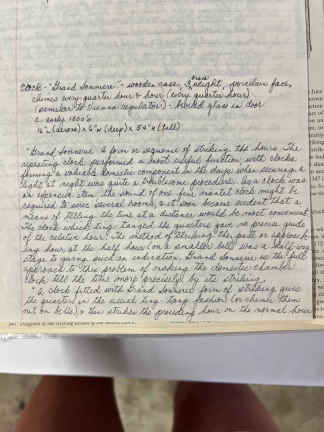 Clock - "Grand Sonnerie" - wooden case, 3 weight, porcelain face,
chimes every quarter hour & hour (every quarter hour)
(similar to Vienna regulator) - beveled glass in door
c. early 1800's
" (across) x 6" (deep) x 54" (tall)
"Grand Sonnerie" A form or sequence of striking the hours. The
repeating clock performed a most useful function with clocks
forming a valuable domestic component in the days when securing a
light at night was quite a troublesome procedure. As a clock was
an expensive item, the sound of one fine mantel clock might be
required to serve several rooms, & it soon became evident that a
means of telling the time at a distance would be most convenient.
The clock which ting-tanged the quarters gave no precise guide
of the relative hour; the method of striking the past or approach-
ing hour at the half hour (on a smaller bell) was a half-way
stage to giving such an indication. Grand Sonnerie is the full
approach to this problem of making the domestic chamber
clock tell the time more precisely by its striking.
"A clock fitted with Grand Sonnerie form of striking gives
the quarters in the usual ting-tang fashion (or chimes them
out on bells), & then strikes the preceding hour on the normal hour